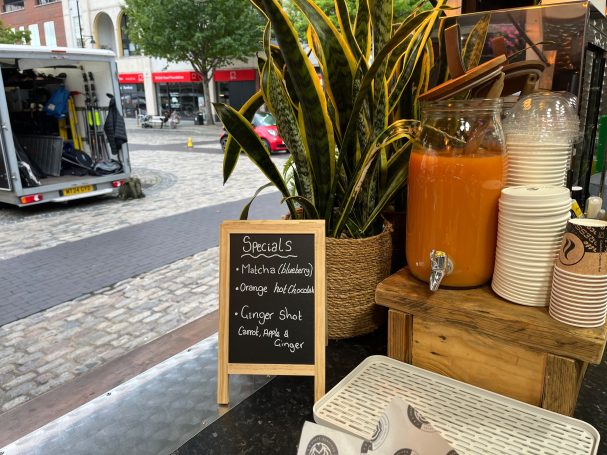 Specials
• Matcha (blueberry)
• Orange hot Chocolate
• Ginger Shot
Carrot, Apple &
Ginger